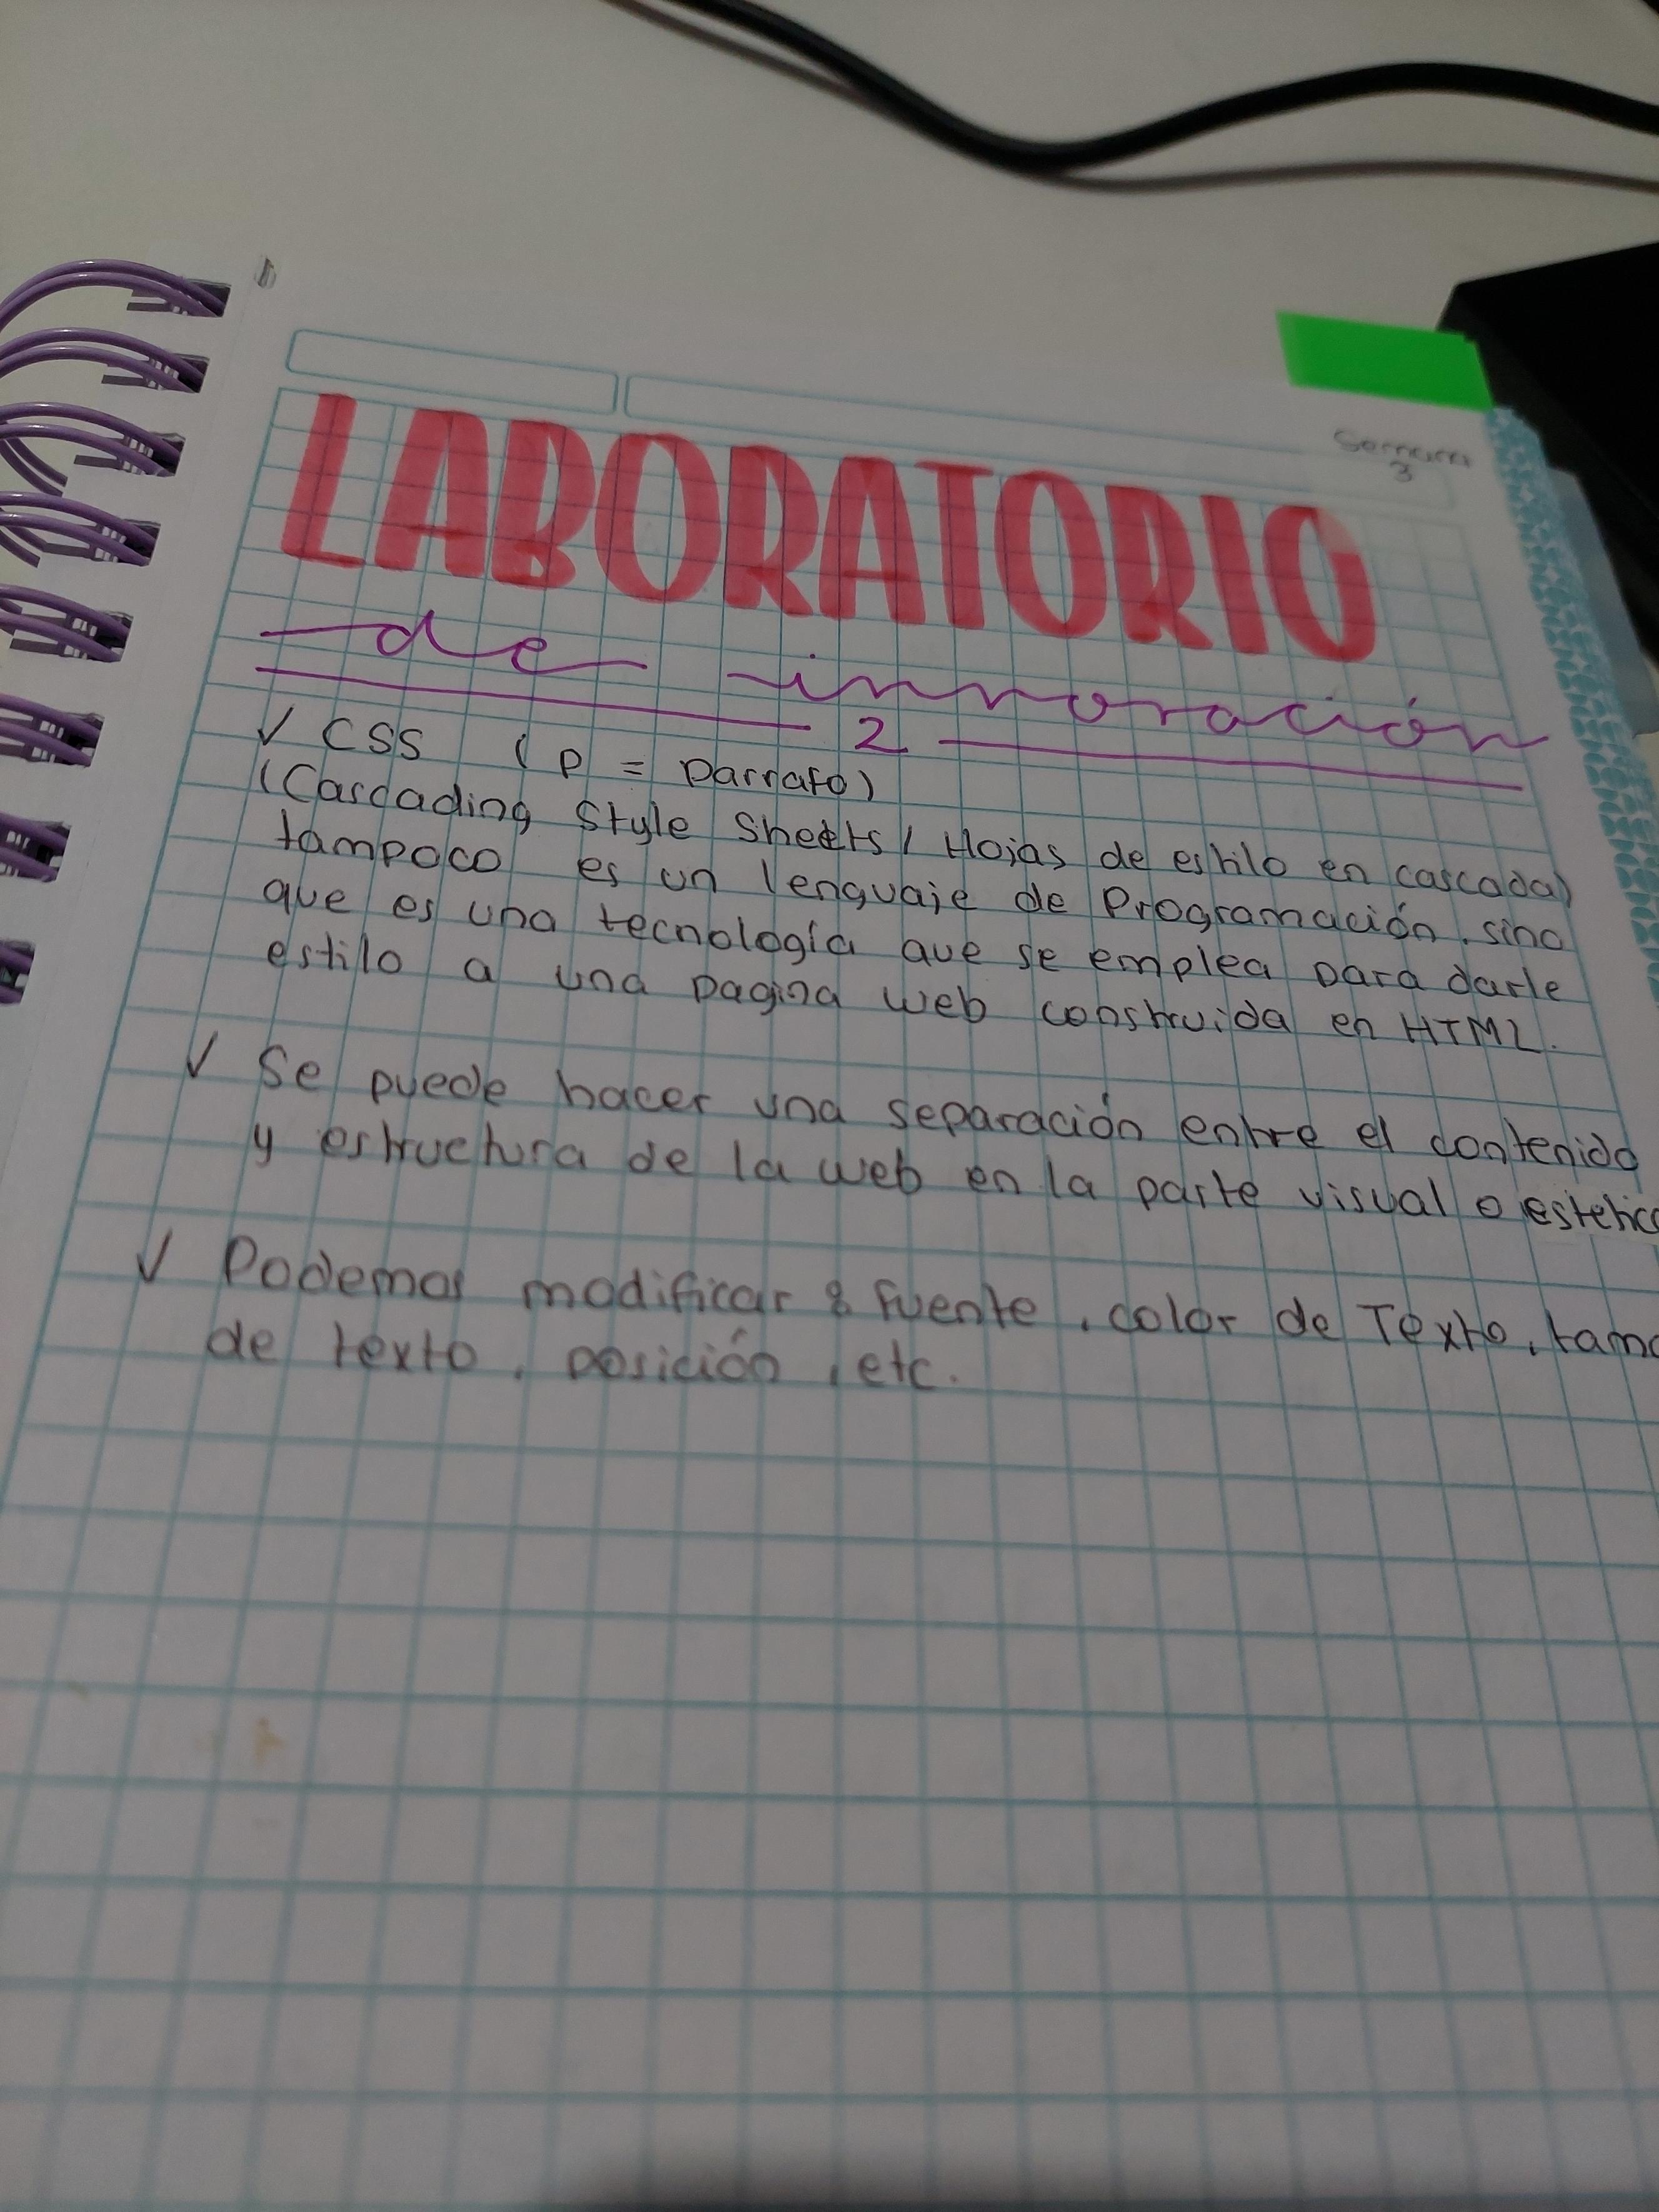 Semana
3
LABORATORIO
de innovación
2
✓ CSS ( P = Parrafo)
(Cascading Style Sheets / Hojas de estilo en cascada)
tampoco es un lenguaje de Programación, sino
que es una tecnología que se emplea para darle
estilo a una pagina web construida en HTML.
✓ Se puede hacer una separación entre el contenido
y estructura de la web en la parte visual o estetica
✓ Podemos modificar 8 fuente, color de Texto, tama
de texto, posición, etc.